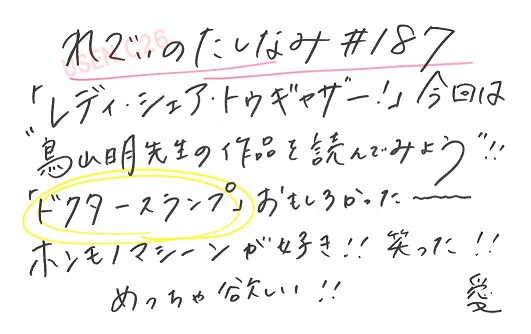 れでぃのたしなみ #187
USEN C26
「レディ・シェア・トゥギャザー!」今回は
"鳥山明先生の作品を読んでみよう"!!
「ドクタースランプ」おもしろかった〜
ホンモノマシーンが好き!! 笑った!!
めっちゃ欲しい!! 愛